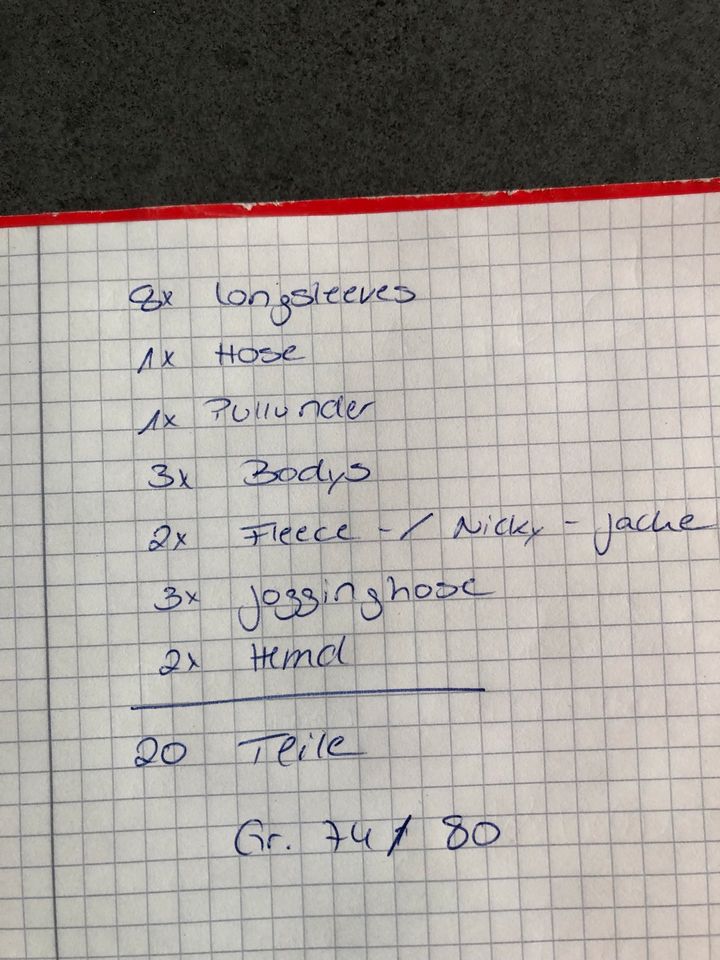 8x Longsleeves
1x Hose
1x Pullunder
3x Bodys
2x Fleece-/Nicky-jacke
3x Jogginghose
2x Hemd
20 Teile
Gr. 74/80